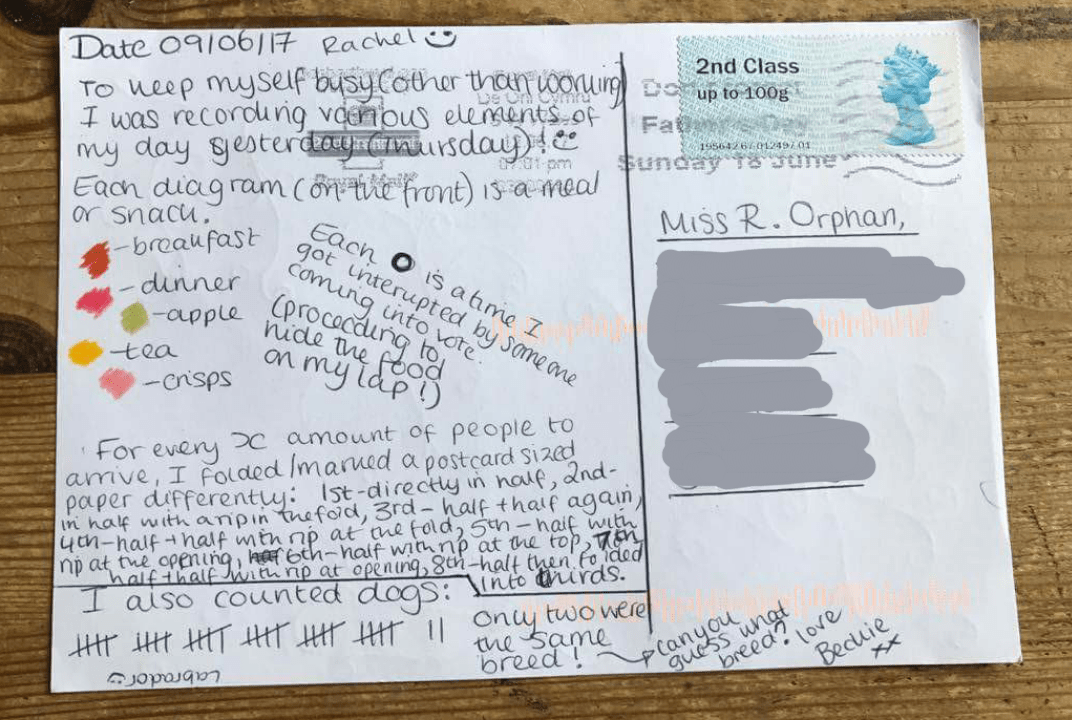 Date 09/06/17 Rachel
To keep myself busy (other than working)
I was recording various elements of
my day yesterday (Thursday)!
Each diagram (on the front) is a meal
or snack.
-breakfast
-dinner
-apple
-tea
-crisps
Each O is a time I
got interupted by someone
coming into vote.
(proceeding to
hide the food
on my lap!)
For every x amount of people to
arrive, I folded/marked a postcard sized
paper differently: 1st-directly in half, 2nd-
in half with a rip in the fold, 3rd- half + half again,
4th-half + half with rip at the fold, 5th-half with
rip at the opening, 6th-half with rip at the top, 7th
half + half with rip at opening, 8th-half then folded
into thirds.
I also counted dogs:
only two were
the same
breed!
can you
guess what
breed? love
Beckie
xx
Labrador
2nd Class
up to 100g
195642 67 01249 01
Royal Mail
De Orll Cymru
07:01 pm
Father's Day
Sunday 18 June
Miss R. Orphan,